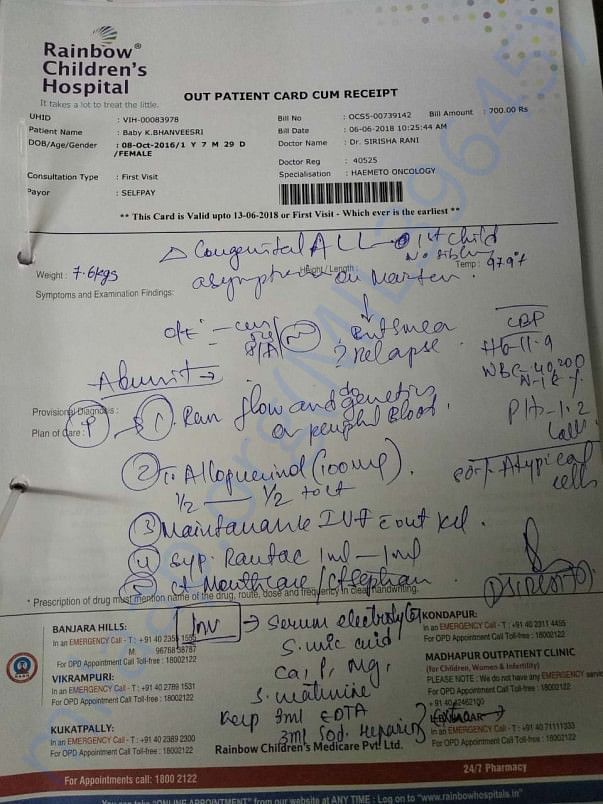 Rainbow®
Children's
Hospital
It takes a lot to treat the little.
OUT PATIENT CARD CUM RECEIPT
UHID : VIH-00083978
Bill No : OCS5-00739142 Bill Amount : 700.00 Rs
Patient Name : Baby K.BHANVEESRI
Bill Date : 06-06-2018 10:25:44 AM
DOB/Age/Gender : 08-Oct-2016/1 Y 7 M 29 D /FEMALE
Doctor Name : Dr. SIRISHA RANI
Doctor Reg : 40525
Consultation Type : First Visit
Specialisation : HAEMETO ONCOLOGY
Payor : SELFPAY
** This Card is Valid upto 13-06-2018 or First Visit - Which ever is the earliest **
Δ Congenital ALL 1st child
No sibling
Weight : 7.6kgs
Height / Length :
Temp : 97.9°f
asymptomatic on
Symptoms and Examination Findings:
o/e - cvs
P/A
but smear
? relapse.
CBP
Hb-11.9
WBC-40,200
Plt-1.2
80% Atypical
cells
Admit →
Provisional Diagnosis :
Plan of Care :
① flow and genetics
on peripheral Blood.
② (100mg).
1/2 — 1/2
③ IVF
④ Syp. Rantac 1ml — 1ml
⑤ ct Mouthcare / ct Septran.
* Prescription of drug must mention name of the drug, route, dose and frequency in clear handwriting.
Inv → Serum electrolytes
S. uric acid
Ca, P, Mg,
Keep 3ml EDTA
3ml Sod. heparin
BANJARA HILLS:
In an EMERGENCY Call - T : +91 40 2355 1555
M: 96768 38787
For OPD Appointment Call Toll-free : 18002122
VIKRAMPURI:
In an EMERGENCY Call - T : +91 40 2789 1531
For OPD Appointment Call Toll-free : 18002122
KUKATPALLY:
In an EMERGENCY Call - T : +91 40 2389 2300
For OPD Appointment Call Toll-free : 18002122
KONDAPUR:
In an EMERGENCY Call - T : +91 40 2311 4455
For OPD Appointment Call Toll-free : 18002122
MADHAPUR OUTPATIENT CLINIC
(for Children, Women & Infertility)
PLEASE NOTE : We do not have any EMERGENCY
For OPD Appointment Call Toll-free : 18002122
+ 91 40 42462100
In an EMERGENCY Call - T : +91 40 71111333
For OPD Appointment Call Toll-free : 18002122
Rainbow Children's Medicare Pvt. Ltd.
For Appointments call: 1800 2122
24/7 Pharmacy
You can take "ONLINE APPOINTMENT" from our website at ANY TIME : Log on to "www.rainbowhospitals.in"